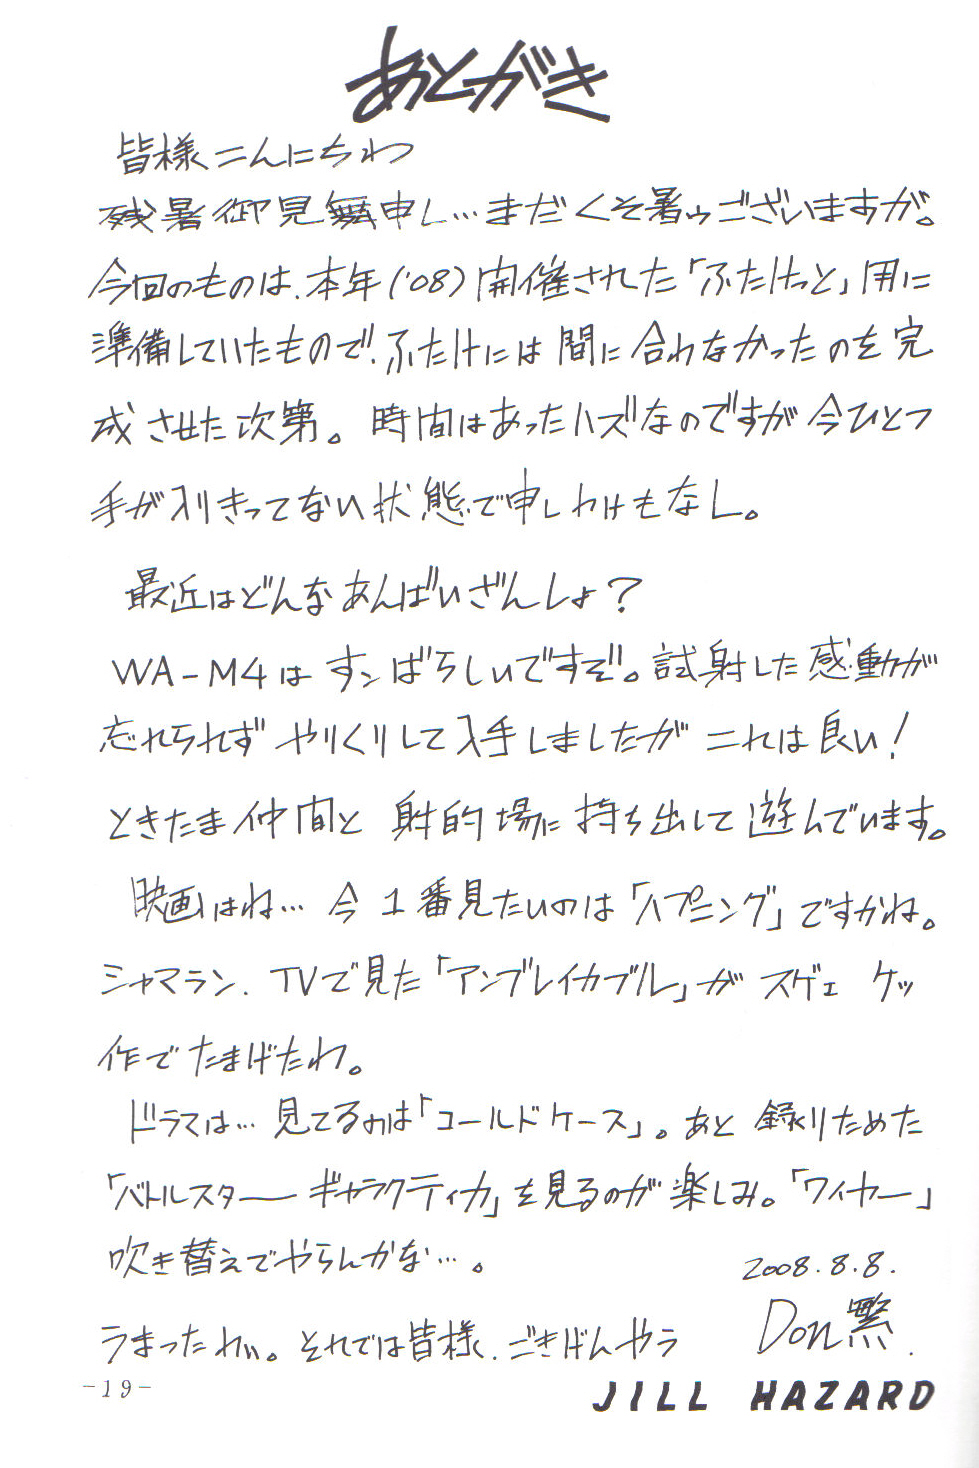 あとがき
皆様こんにちわ
残暑御見舞申し…まだくそ暑ゥございますが。
今回のものは、本年('08)開催された「ふたけっと」用に
準備していたもので、ふたけには間に合わなかったのを完
成させた次第。時間はあったハズなのですが今ひとつ
手が入りきってない状態で申しわけもなし。
最近はどんなあんばいざんしょ?
WA-M4はすンばらしいですぞ。試射した感動が
忘れられずやりくりして入手しましたがこれは良い!
ときたま仲間と射的場に持ち出して遊んでいます。
映画はね…今1番見たいのは「ハプニング」ですかね。
シャマラン、TVで見た「アンブレイカブル」がスゲェケッ
作でたまげたわ。
ドラマは…見てるのは「コールドケース」。あと録りためた
「バトルスターギャラクティカ」を見るのが楽しみ。「ワイヤー」
吹き替えでやらんかな…。
2008.8.8.
うまったわい。それでは皆様、ごきげんやう
Don繁.
-19-
JILL HAZARD